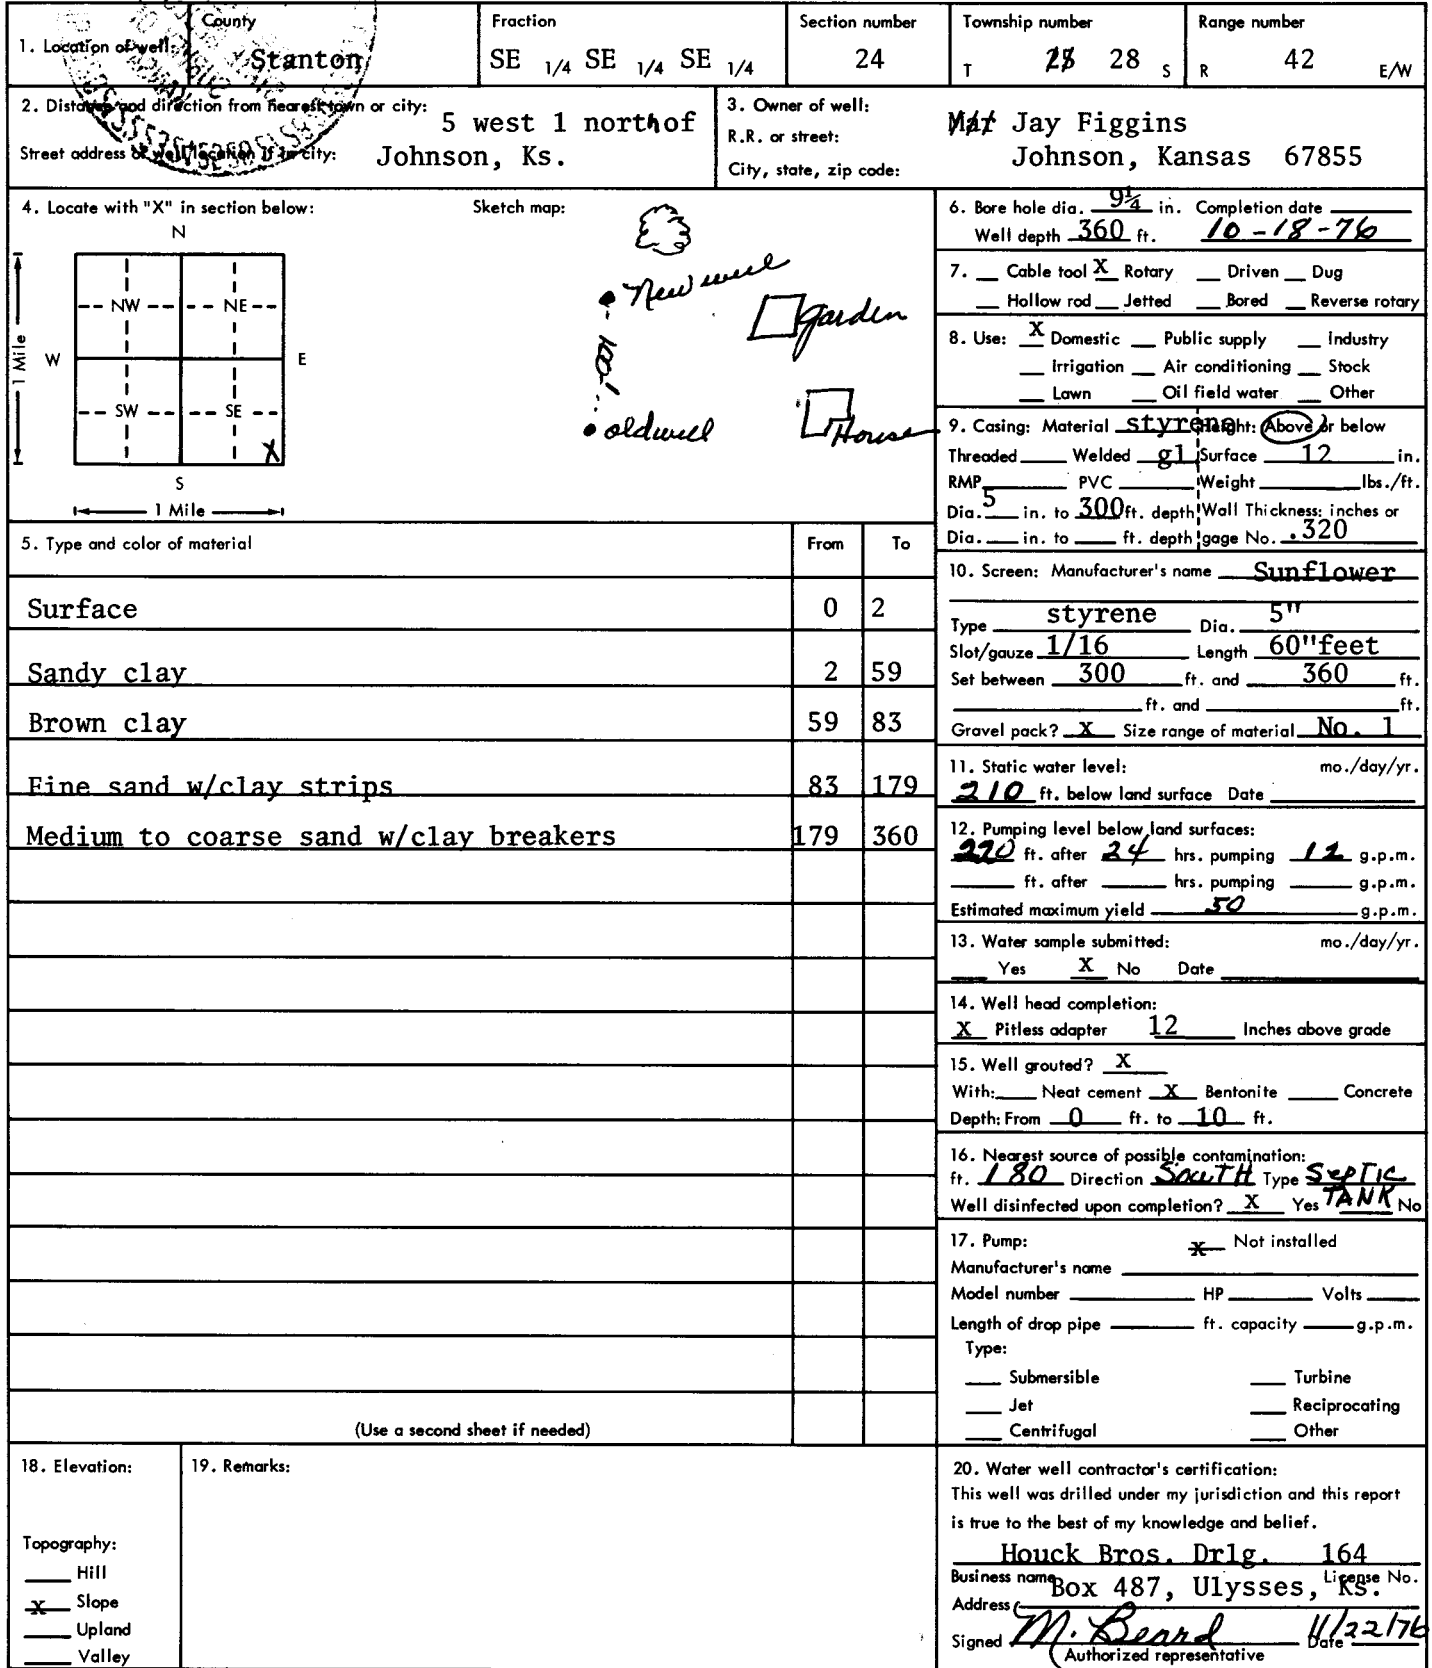 1. Location of well: County Stanton Fraction SE 1/4 SE 1/4 SE 1/4 Section number 24 Township number T 28 S Range number R 42 E/W
2. Distance and direction from nearest town or city: 5 west 1 north of
Street address of well location if in city: Johnson, Ks.
3. Owner of well: Jay Figgins
R.R. or street:
City, state, zip code: Johnson, Kansas 67855
4. Locate with "X" in section below:
N
NW NE
W E
SW SE
X
S
1 Mile
1 Mile
Sketch map:
New well
garden
100'
old well
House
5. Type and color of material From To
Surface 0 2
Sandy clay 2 59
Brown clay 59 83
Fine sand w/clay strips 83 179
Medium to coarse sand w/clay breakers 179 360
(Use a second sheet if needed)
6. Bore hole dia. 9 1/4 in. Completion date
Well depth 360 ft. 10-18-76
7. Cable tool X Rotary Driven Dug
Hollow rod Jetted Bored Reverse rotary
8. Use: X Domestic Public supply Industry
Irrigation Air conditioning Stock
Lawn Oil field water Other
9. Casing: Material styrene Height: Above or below
Threaded Welded gl Surface 12 in.
RMP PVC Weight lbs./ft.
Dia. 5 in. to 300 ft. depth Wall Thickness: inches or
Dia. in. to ft. depth gage No. .320
10. Screen: Manufacturer's name Sunflower
Type styrene Dia. 5"
Slot/gauze 1/16 Length 60"feet
Set between 300 ft. and 360 ft.
ft. and ft.
Gravel pack? X Size range of material No. 1
11. Static water level: mo./day/yr.
210 ft. below land surface Date
12. Pumping level below land surfaces:
220 ft. after 24 hrs. pumping 12 g.p.m.
ft. after hrs. pumping g.p.m.
Estimated maximum yield 50 g.p.m.
13. Water sample submitted: mo./day/yr.
Yes X No Date
14. Well head completion:
X Pitless adapter 12 Inches above grade
15. Well grouted? X
With: Neat cement X Bentonite Concrete
Depth: From 0 ft. to 10 ft.
16. Nearest source of possible contamination:
ft. 180 Direction South Type Septic
Well disinfected upon completion? X Yes TANK No
17. Pump: X Not installed
Manufacturer's name
Model number HP Volts
Length of drop pipe ft. capacity g.p.m.
Type:
Submersible Turbine
Jet Reciprocating
Centrifugal Other
18. Elevation:
Topography:
Hill
X Slope
Upland
Valley
19. Remarks:
20. Water well contractor's certification:
This well was drilled under my jurisdiction and this report
is true to the best of my knowledge and belief.
Houck Bros. Drlg. 164
Business name License No.
Address Box 487, Ulysses, Ks.
Signed M. Beard Date 11/22/76
Authorized representative